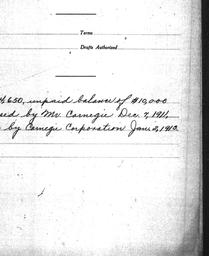 Terms
Drafts Authorized
650, unpaid balance of $10,000
by Mr. Carnegie Dec. 7, 1911,
by Carnegie Corporation June 2, 1913.